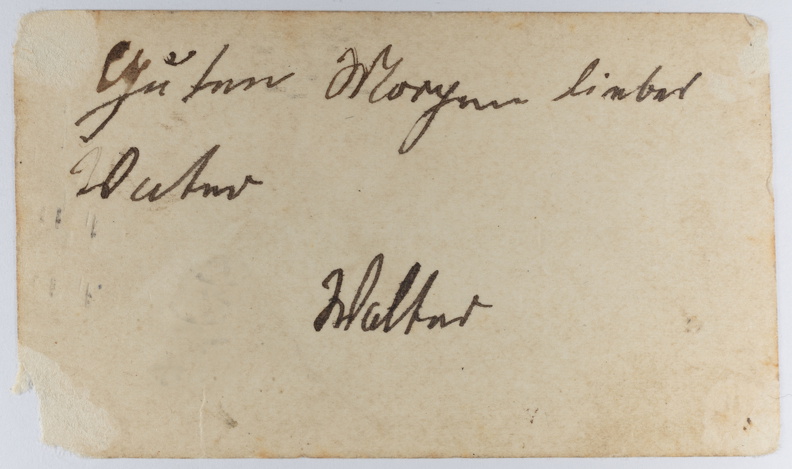 Guten Morgen lieber
Vater
Walter